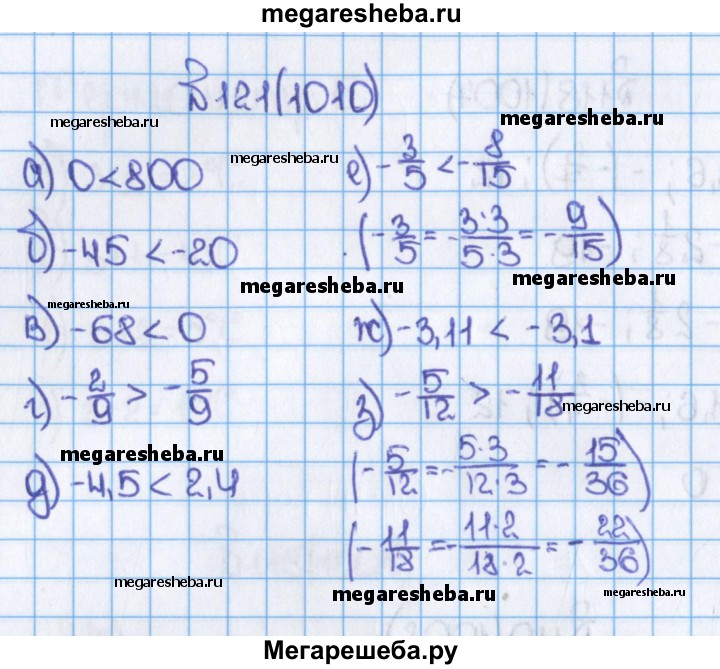 megaresheba.ru
№121(1010)
megaresheba.ru
megaresheba.ru
megaresheba.ru
а) 0<800
е) -3/5 < -8/15
б) -45 < -20
(-3/5 = -3·3/5·3 = -9/15)
megaresheba.ru
megaresheba.ru
megaresheba.ru
в) -68 < 0
ж) -3,11 < -3,1
г) -2/9 > -5/9
з) -5/12 > -11/18
megaresheba.ru
megaresheba.ru
д) -4,5 < 2,4
(-5/12 = -5·3/12·3 = -15/36)
(-11/18 = -11·2/18·2 = -22/36)
megaresheba.ru
megaresheba.ru
megaresheba.ru
Мегарешеба.ру